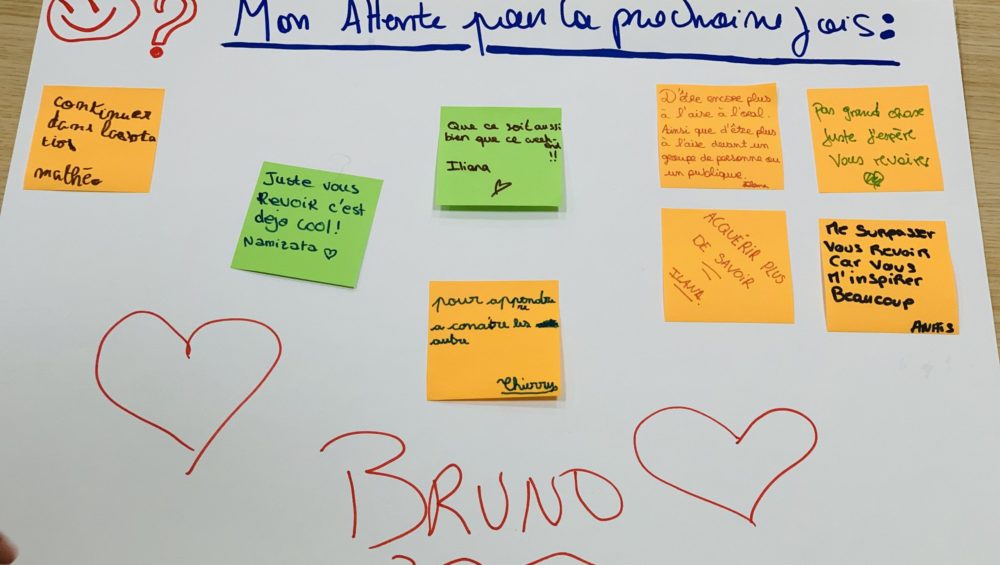 ?
Mon Attente pour la prochaine fois:
continuer
dans l'assota
tion
mathé
Juste vous
Revoir c'est
deja cool!
Namizata
Que ce soit aussi
bien que ce week-
end
!!
Iliana
D'être encore plus
à l'aise à l'oral.
Ainsi que d'être plus
à l'aise devant un
groupe de personne ou
un publique.
Pas grand chose
Juste j'espère
Vous revoires
pour apprendre
a conaitre les
autre
Thierry
ACQUÉRIR PLUS
DE SAVOIR
ILANA.
Me Surpasser
Vous Revoir
Car Vous
M'inspirer
Beaucoup
ANAïS
BRUNO